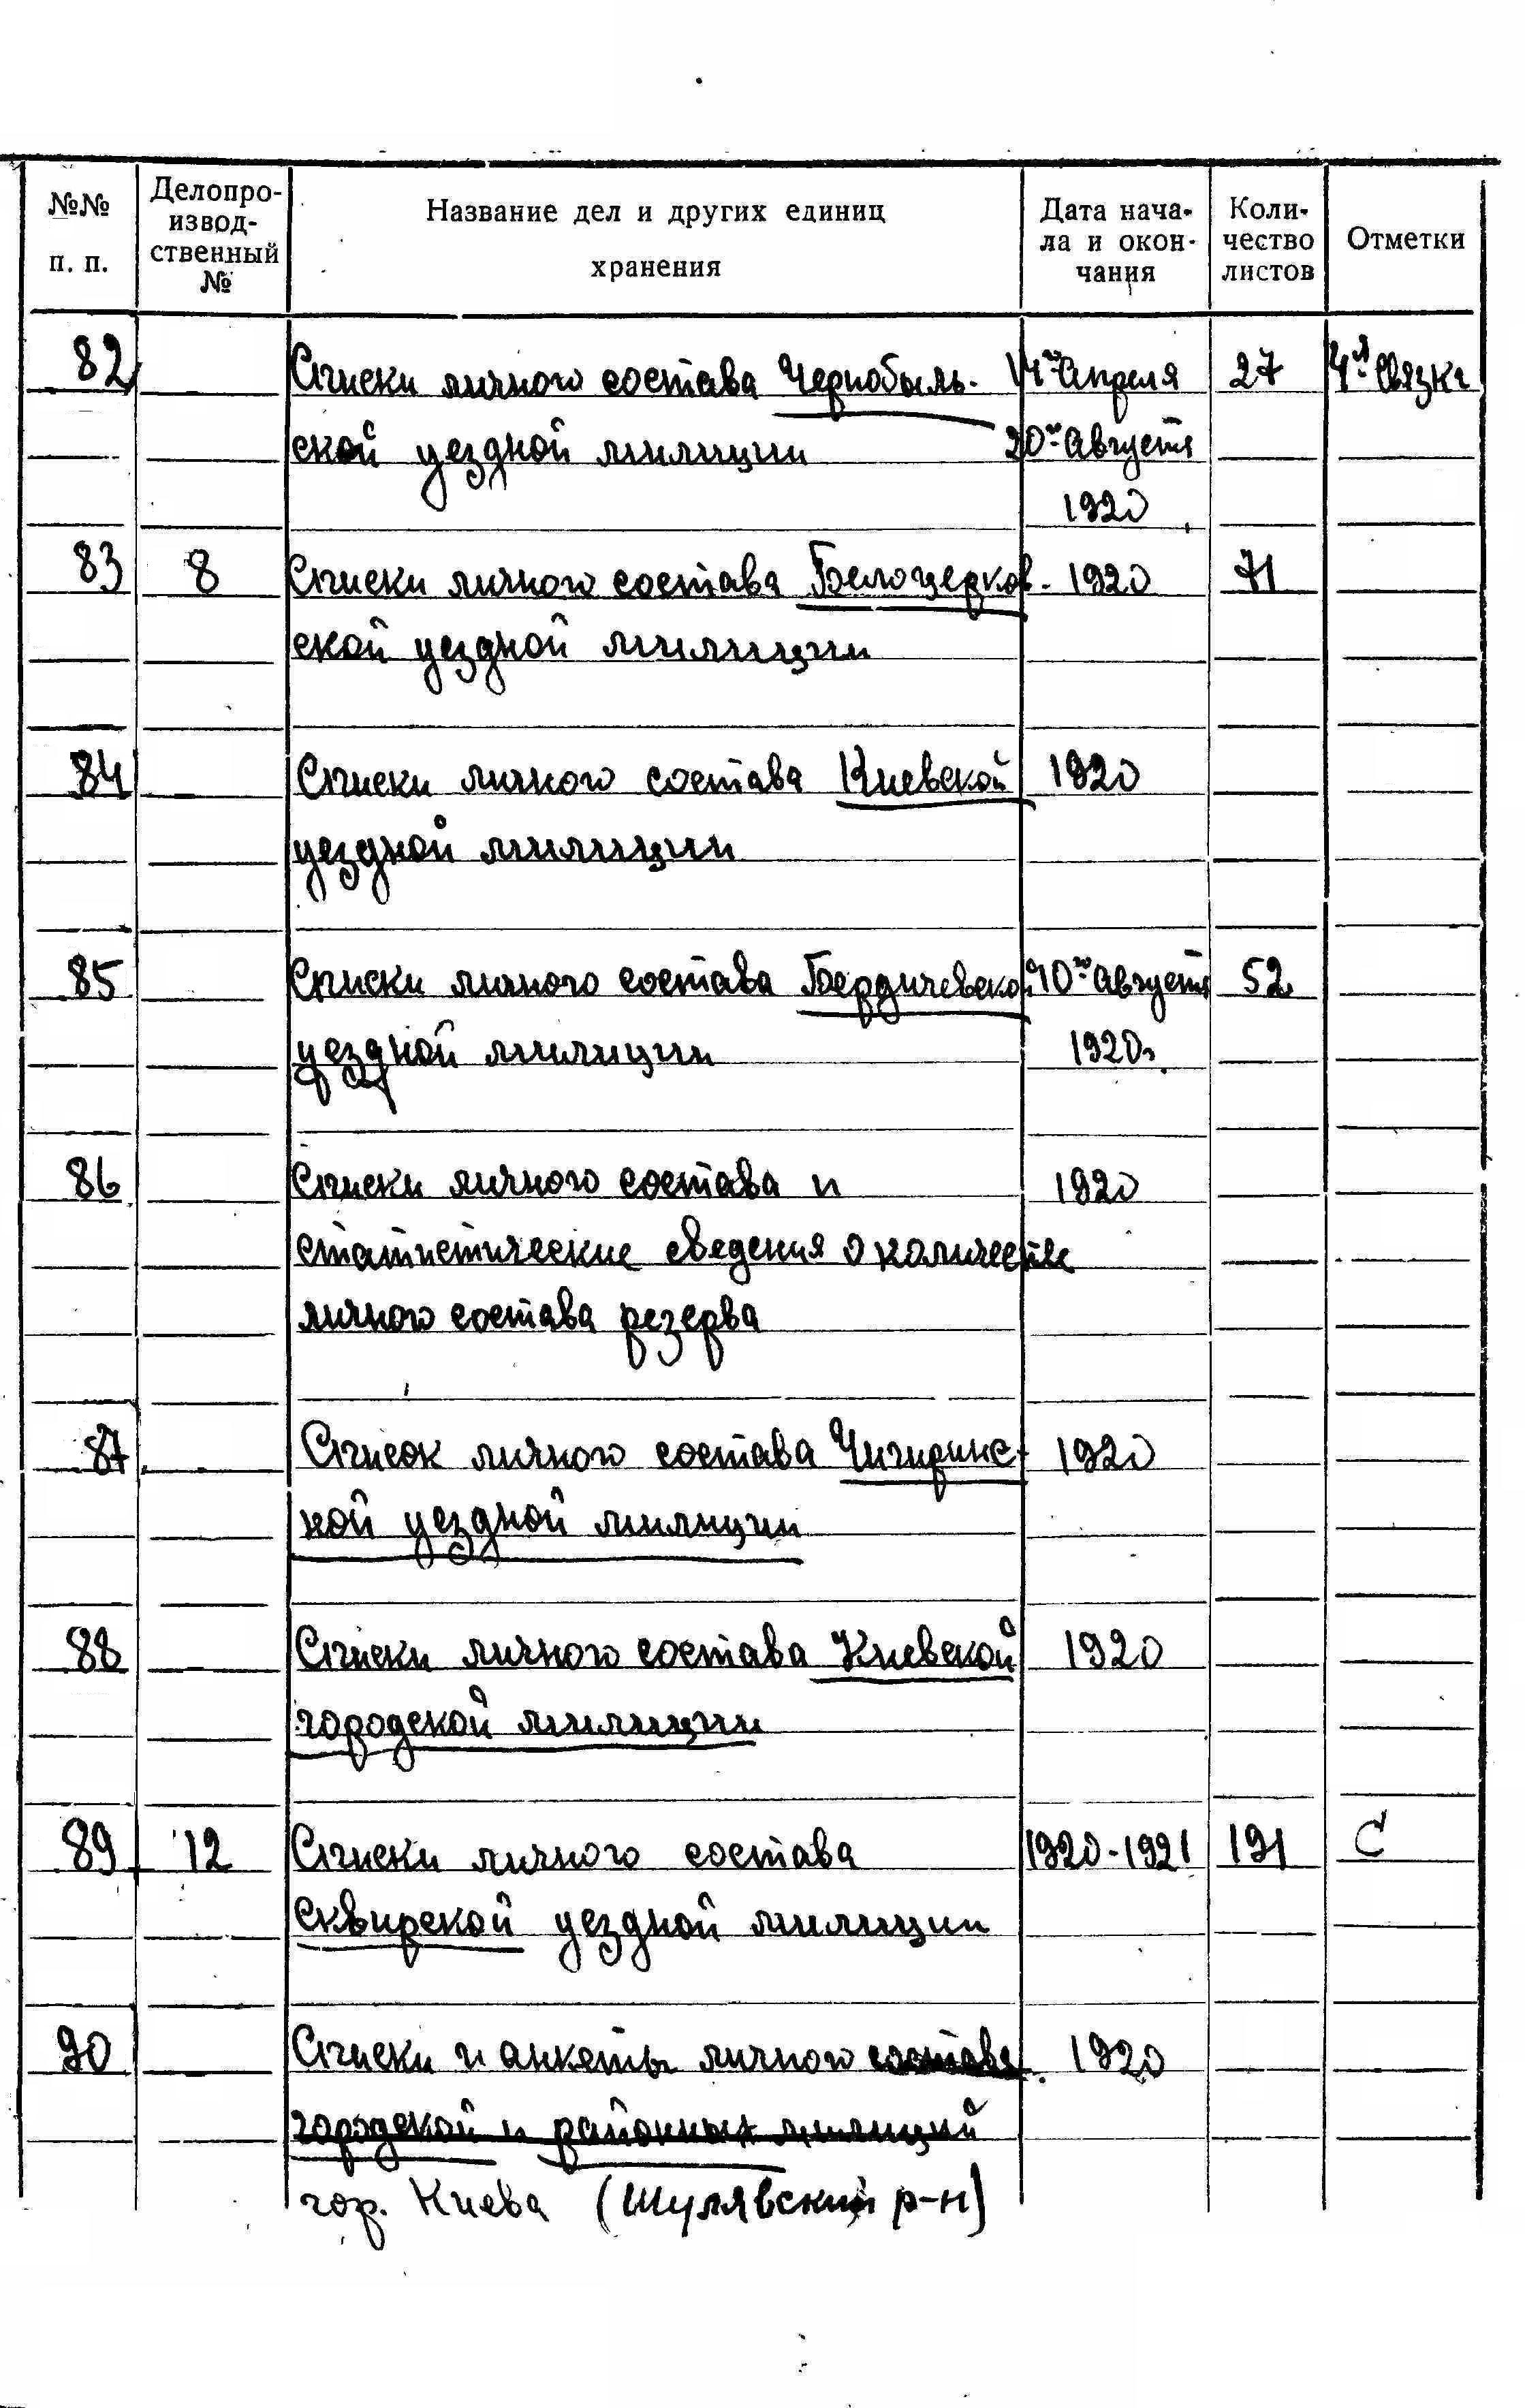 №№ п. п. Делопро-извод-ственный № Название дел и других единиц хранения Дата нача-ла и окон-чания Коли-чество листов Отметки
82 Списки личного состава Чернобыль- 14го Апреля 27 4я Связка
ской уездной милиции 20го Августа
1920
83 8 Списки личного состава Белоцерков- 1920 71
ской уездной милиции
84 Списки личного состава Киевской 1920
уездной милиции
85 Списки личного состава Бердичевской 10го Августа 52
уездной милиции 1920г.
86 Списки личного состава и 1920
статистические сведения о количестве
личного состава резерва
87 Список личного состава Чигиринс- 1920
кой уездной милиции
88 Списки личного состава Киевской 1920
городской милиции
89 12 Списки личного состава 1920-1921 191 С
Сквирской уездной милиции
90 Списки и анкеты личного состава 1920
городской и районных милиций
гор. Киева (Шулявский р-н)